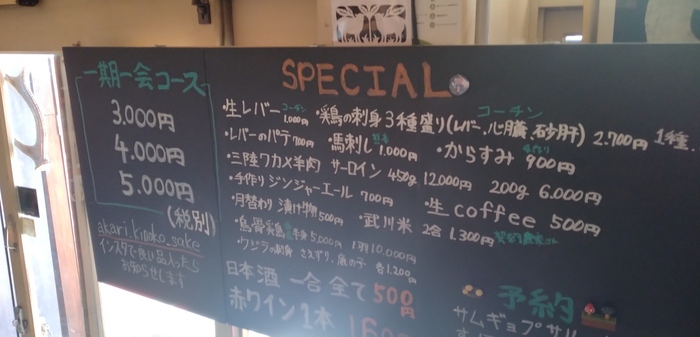 一期一会コース
3.000円
4.000円
5.000円
(税別)
akari.kinoko_sake
インスタで良い品入ったら
お知らせします
SPECIAL
・生レバー コーチン 1,000円
・鶏の刺身3種盛り(レバー、心臓、砂肝) コーチン 2.700円 1種.
・レバーのパテ 700円
・馬刺し 1,000円
・からすみ 900円
・三陸ワカメ羊肉 サーロイン 450g 12.000円 200g 6.000円
・手作りジンジャーエール 700円
・生coffee 500円
・月替わり 漬け物 500円
・武川米 2合 1.300円
・烏骨鶏 半身 5,000円 1羽 10,000円
・クジラの刺身 さえずり、鹿の子 各1.200円
日本酒 一合 全て500円
赤ワイン1本
予約
サムギョプサル